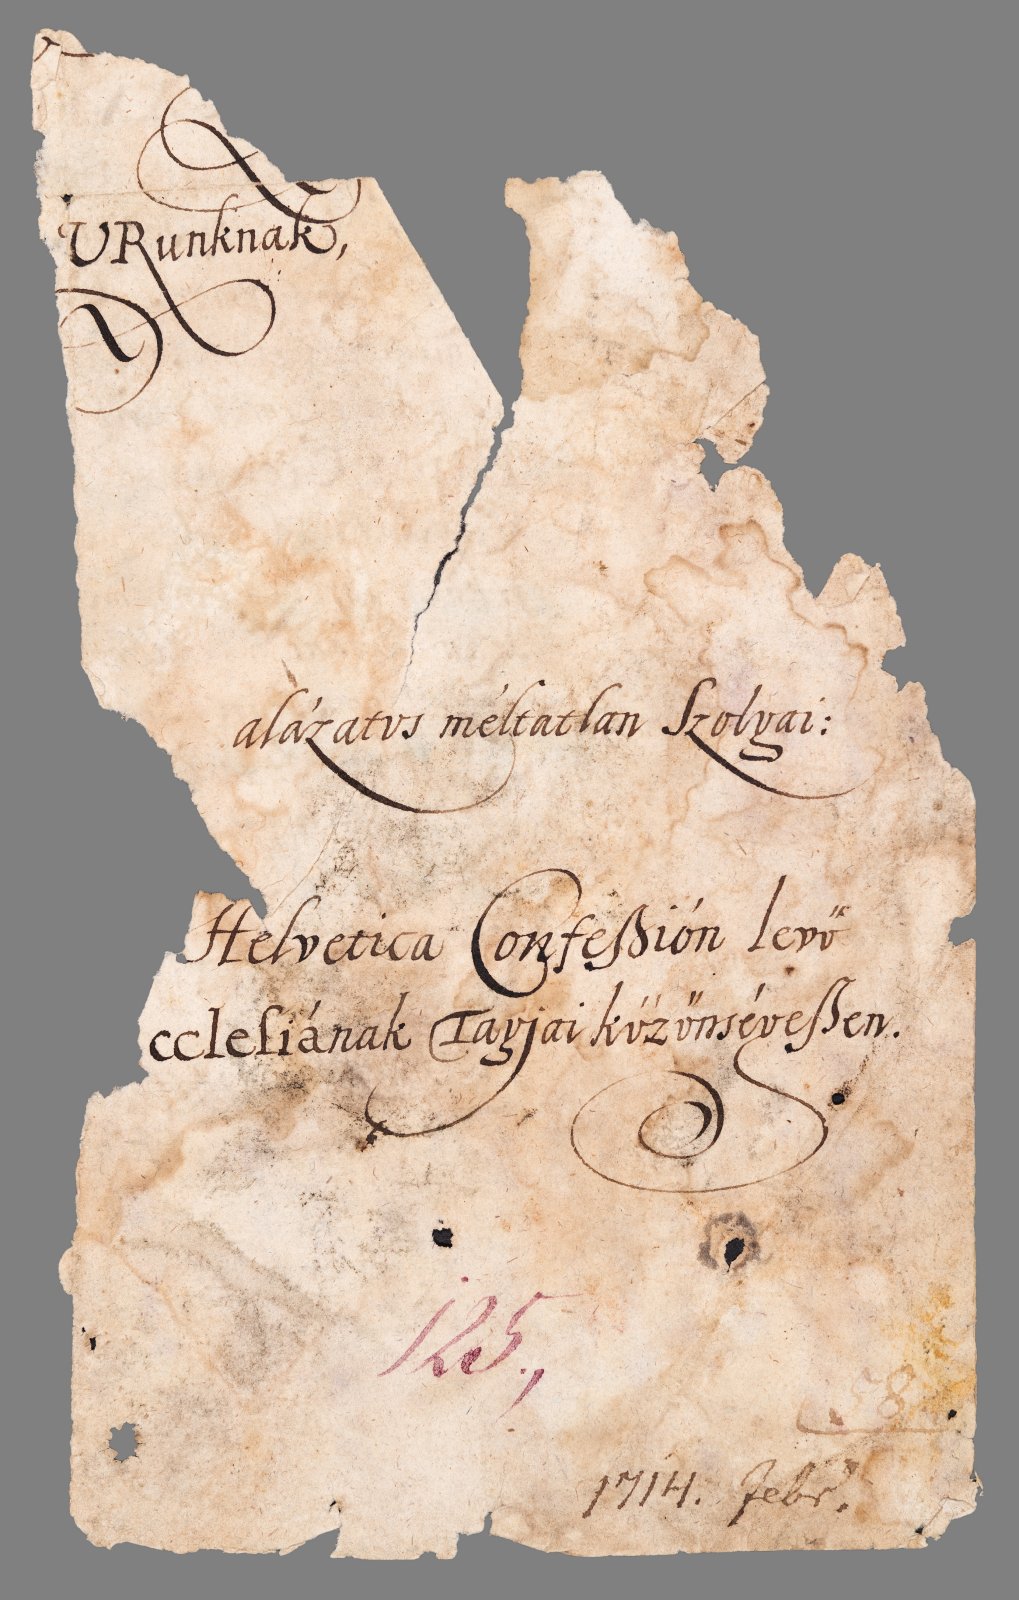 URunknak,
alázatvs méltatlan Szolgai:
Helvetica Confeßión levő
cclesiának Tagjai kőzőnségeßen.
125.,
58
1714. Febr.